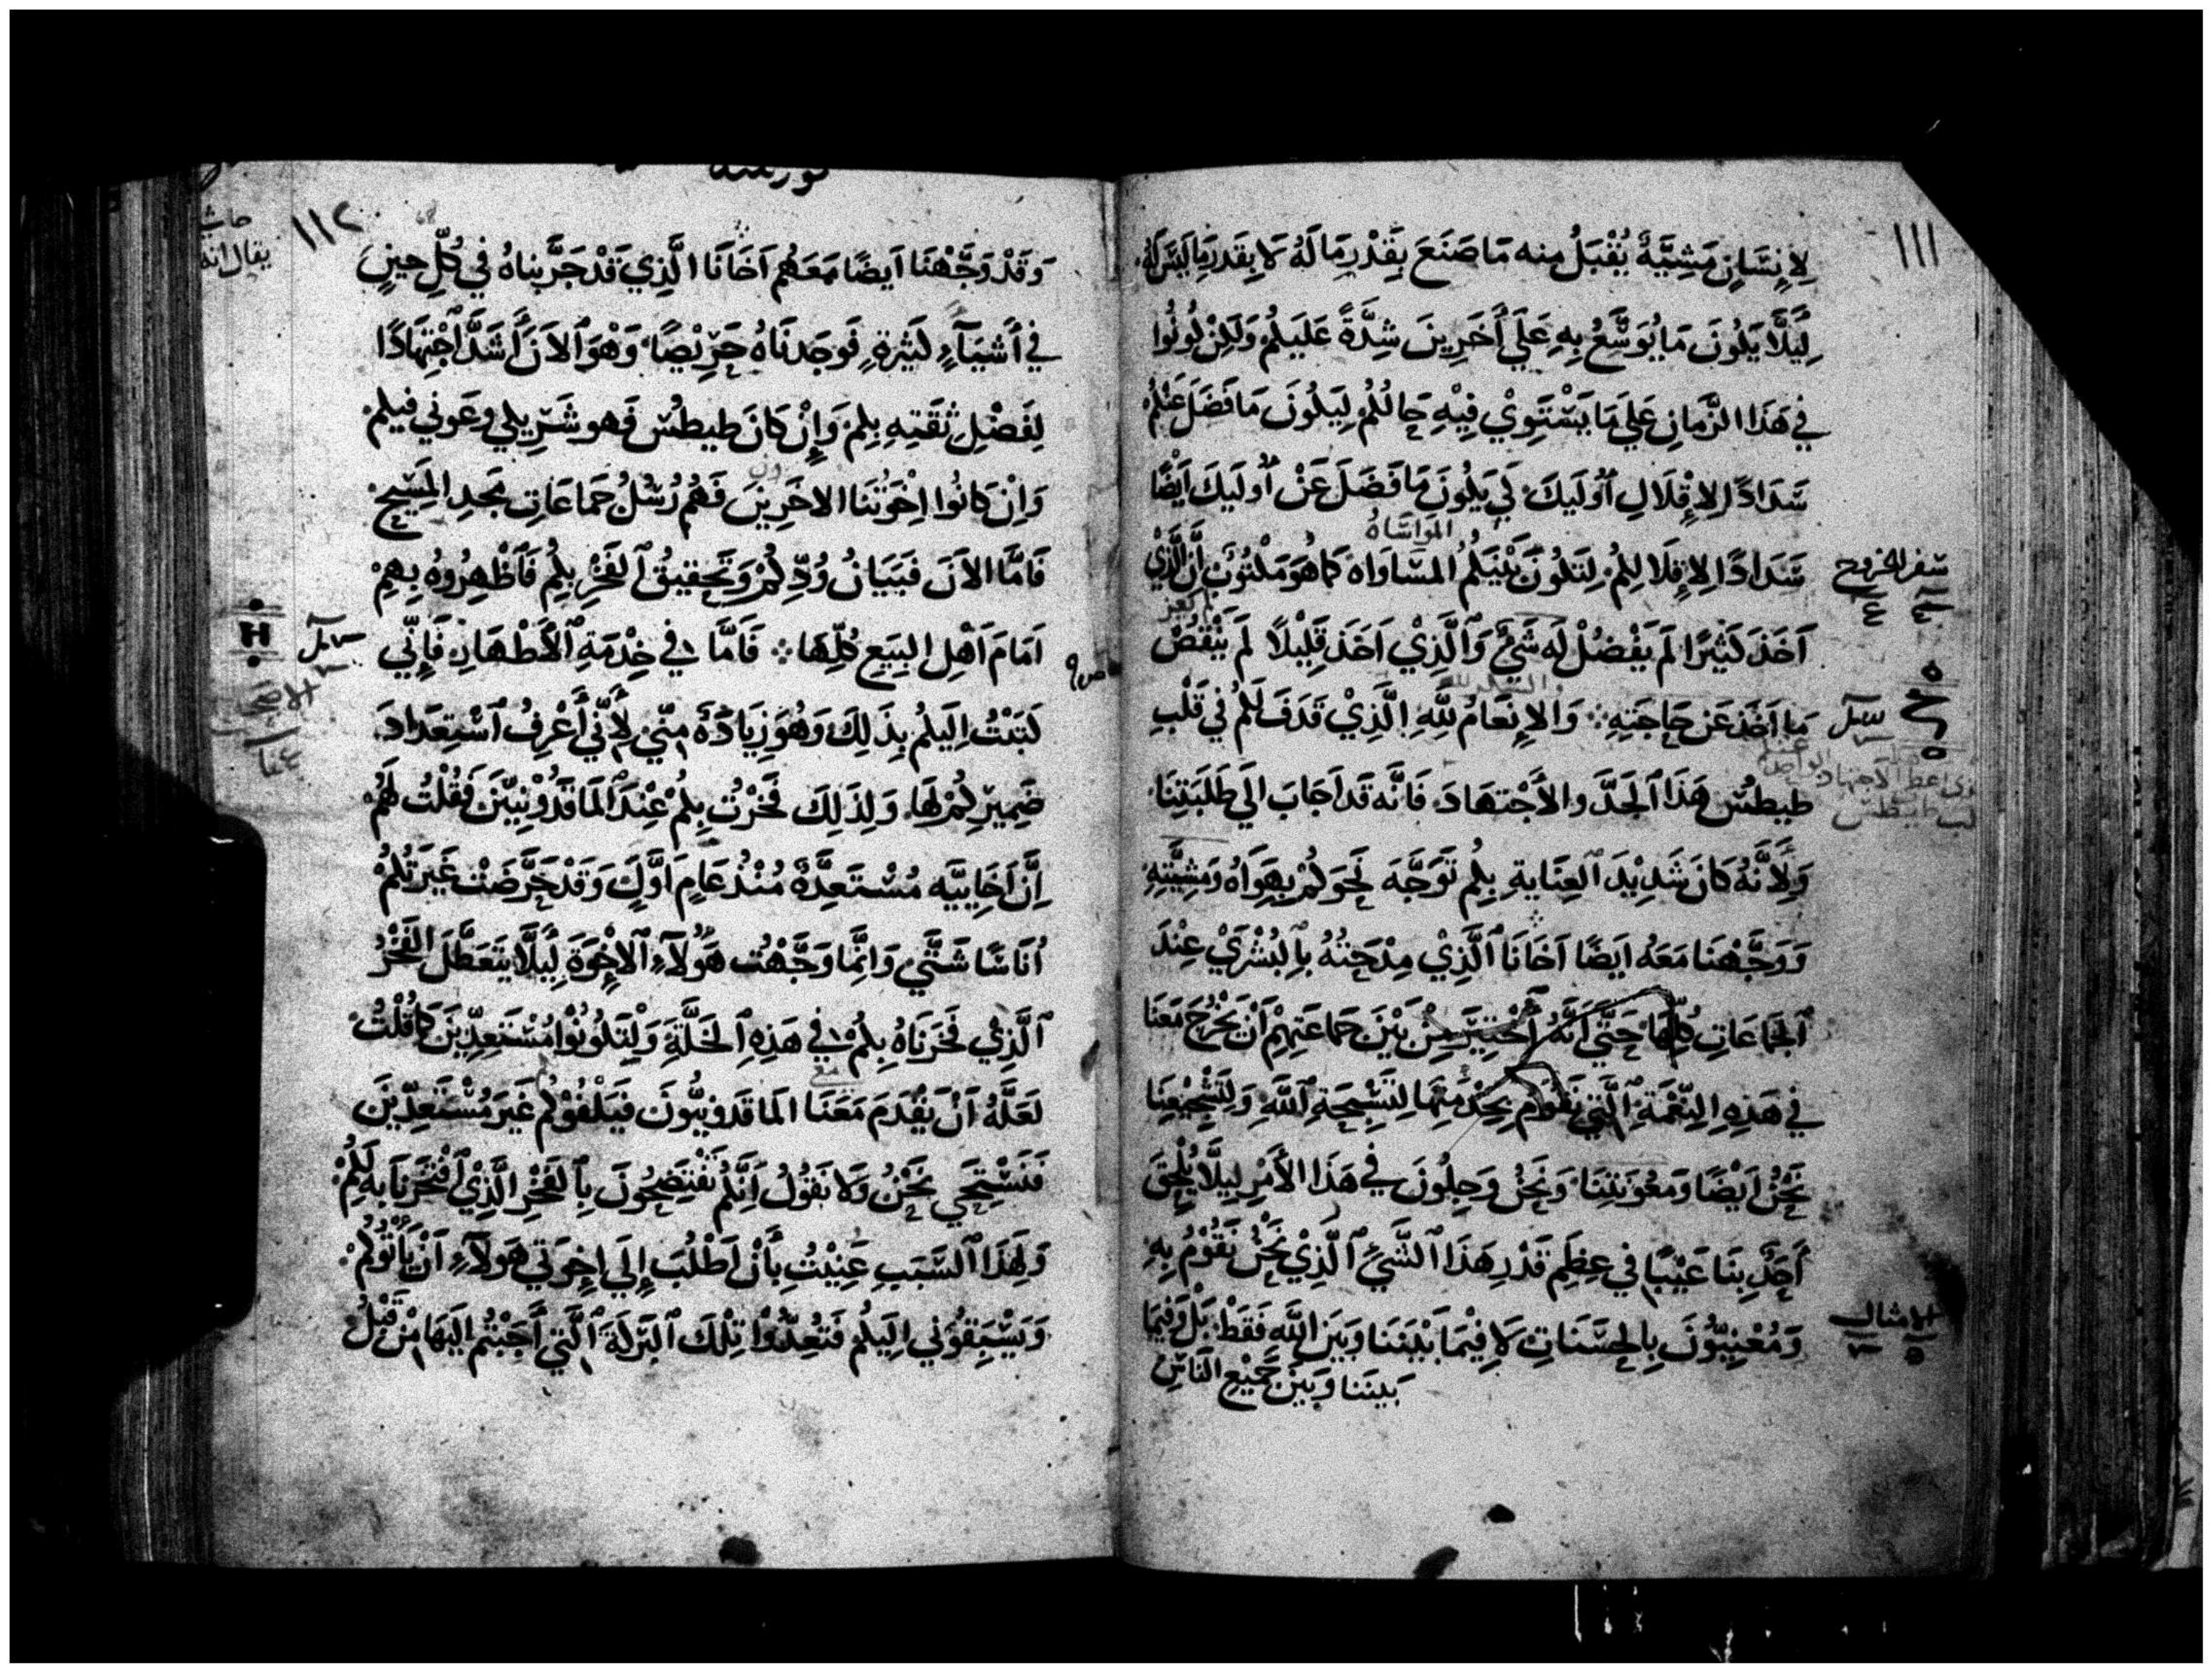 ١١١
لِإِنسَانٍ مَشِيَّةٌ يُقْبَلُ منه مَا صَنَعَ بِقَدْرِ مَا لَهُ لَا بِقَدرِ مَا لَيسَ لَهُ
لِيَلَّا يَكُونَ مَا يُوَسَّعُ بِهِ عَلَي أَخَرِينَ شِدَّةً عَلَيكُم وَلَكِن كُونُوا
في هَذَا الزَّمَانِ عَلَي مَا يَسْتَوِيْ فِيْهِ حَالُكُم لِيَكُونَ مَا فَضَلَ عَنْكُم
سَدَادًا لِإِقْلَالِ أُولَيكَ لَي يَكُونَ مَا فَضَلَ عَنْ أُولَيكَ أَيْضًا
المواساة
سَدَادًا لِإِقلَالِكُم لِتَكُونَ بَيْنَكُمُ المسَاوَاة كَمَا هُوَ مَكْتُوبٌ أَنَّ الَّذِيْ
سفر الخروج
أَخَذَ كَثِيْرًا لَم يَفْضُلْ لَه شَيْءٌ وَالَّذِيْ اَخَذَ قَلِيْلًا لَم يَنْقُصْ
مَا اَخَذَ عَن حَاجَتِهِ وَالإِنعَامُ لِلَّهِ الَّذِيْ قَدَفَ لَكُم فِي قَلْبِ
طيطسْ هَذَا الجَدَّ والأَجْتهَادَ فَانَّه قَد اَجَابَ الَي طَلَبَتِنَا
وَلأَنَّهُ كَانَ شَدِيْدَ العِنَايةِ بِكُم تَوَجَّهَ نَحوَكُمْ بِهَوَاهُ وَمَشِيَّتِهِ
وَوَجَّهْنَا مَعَه ايَضًا اَخَانَا الَّذِيْ مِدْحَتُهُ بِالبُشْرَيْ عِنْدَ
الجَمَاعَاتِ كُلِّهَا حَتَّي أَنَّهُ أُخْتِيَرَ مِنْ بَيْنَ جَمَاعَتِهِمْ اَنْ يَخْرُجَ مَعَنَا
في هَذِهِ النِّعْمَةِ الَّتِي نَقُومُ بِخِدْمَتِهَا لِتَسْبِحَةِ اللَّهِ وَلِتَشْجِيْعِنَا
نَحْنُ اَيْضًا وَمَعُونَتِنَا وَنَحنُ وَجِلُونَ في هَذَا الأَمْرِ لِيلَّا يُلْحِقَ
أَحَدٌ بِنَا عَيْبًا في عِظَمِ قَدْرِ هَذَا الشَّيْءِ الَّذِيْ نَحْنُ نَقُوْمُ بِهِ
وَمُعْنِيُّونَ بِالحسَنَاتِ لَا فِيْمَا بَيْنَنَا وَبَيَنَ اللَّهِ فَقَطْ بَلْ وَفيْمَا
الامثال
بَينَنا وَبَينَ جَمِيْعِ النَاسِ
١١٢
حاشية
يقال انه
وَقَدْ وَجَّهْنَا اَيضًا مَعَهُم اَخَانَا الَّذِي قَدْ جَرَّبنَاهُ في كُلِّ حِينٍ
في أَشيَآءٍ كَثِيْرةٍ فَوجَدنَاهُ حَرِيْصًا وَهْوَ الاَنَ أَشَدُّ اجْتِهَادًا
لِفَضْلِ ثِقَتِهِ بِكُم وَإِنْ كَانَ طيطُس فَهو شَرِيكي وعَوني فيكم
وَاِنْ كَانُوا اِخْوَتُنَا الاخَرِينَ فَهُم رُسُلُ جَمَاعَاتِ مَجدِ المَسِيحِ
فَامَّا الاَنَ فَبَيَانُ وُدِّكُمْ وَتَحقِيقُ الفَخْرِ بِكُم فَاظْهِرُوهُ بِهِمْ
اَمَامَ اَهْلِ البِيَعِ كُلِّهَا فَامَّا في خِدْمَةِ الأَطْهَارِ فَإِنِّي
كَتَبْتُ اِلَيكُم بِذَلِكَ وَهُوَ زِيَادَةٌ مِنِّي لأَنِّي أَعْرِفُ اسْتِعدَادَ
ضَمِيرِكُمْ لهَا وَلِذَلِكَ فَخَرْتُ بِكُم عِنْدَ المَاقَدُوْنِيِّيْنَ فَقُلْتُ لَهُم
اِنَّ اَخَايِيَّه مُسْتَعِدَّةٌ مُنْذُ عَامٍ اَوَّلٍ وَقَدْ حَرَّضَتْ غَيَرتُكُم
أُنَاسًا شَتَّي وَانِمَّا وَجَّهْتُ هَؤُلَآءِ الاِخْوَةَ لِيَلَّا يَتَعَطَّلَ الفَخْرُ
الَّذِيْ فَخَرنَاهُ بِكُمْ في هَذِهِ الخَلَّةِ وَلِتَكُونُوا مُسْتَعِدِّيْنَ كَمَا قُلْتُ
لَعَلَّهُ اَنْ يَقْدَمَ مَعَنَا المَاقَدونِيُّونَ فَيَلْفُوْكُم غَيرَ مُسْتَعِدِّيْنَ
فَنَسْتَحِي نَحْنُ وَلَا نَقُوْلُ اَنَّكُم تَفْتَضِحُونَ بِالفَخْرِ الَّذِيْ افْتَخَرنَا بِه لَكُم
وَلِهَذَا السَّبَبِ عَنِيْتُ بِأَنْ اَطْلُبَ إِلَي إِخوَتي هَولَآءِ اَنْ يَأْتُوكُم
وَيَسْبِقُوني اِلَيكُم فَتُعِدُّوْا تِلْكَ البَرَكَةَ الَّتي أَجَبْتُم اِلَيهَا مِنْ قَبْلُ